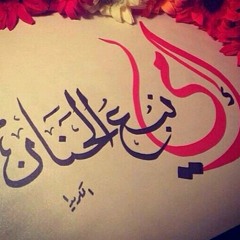 أمي
نبع الحنان